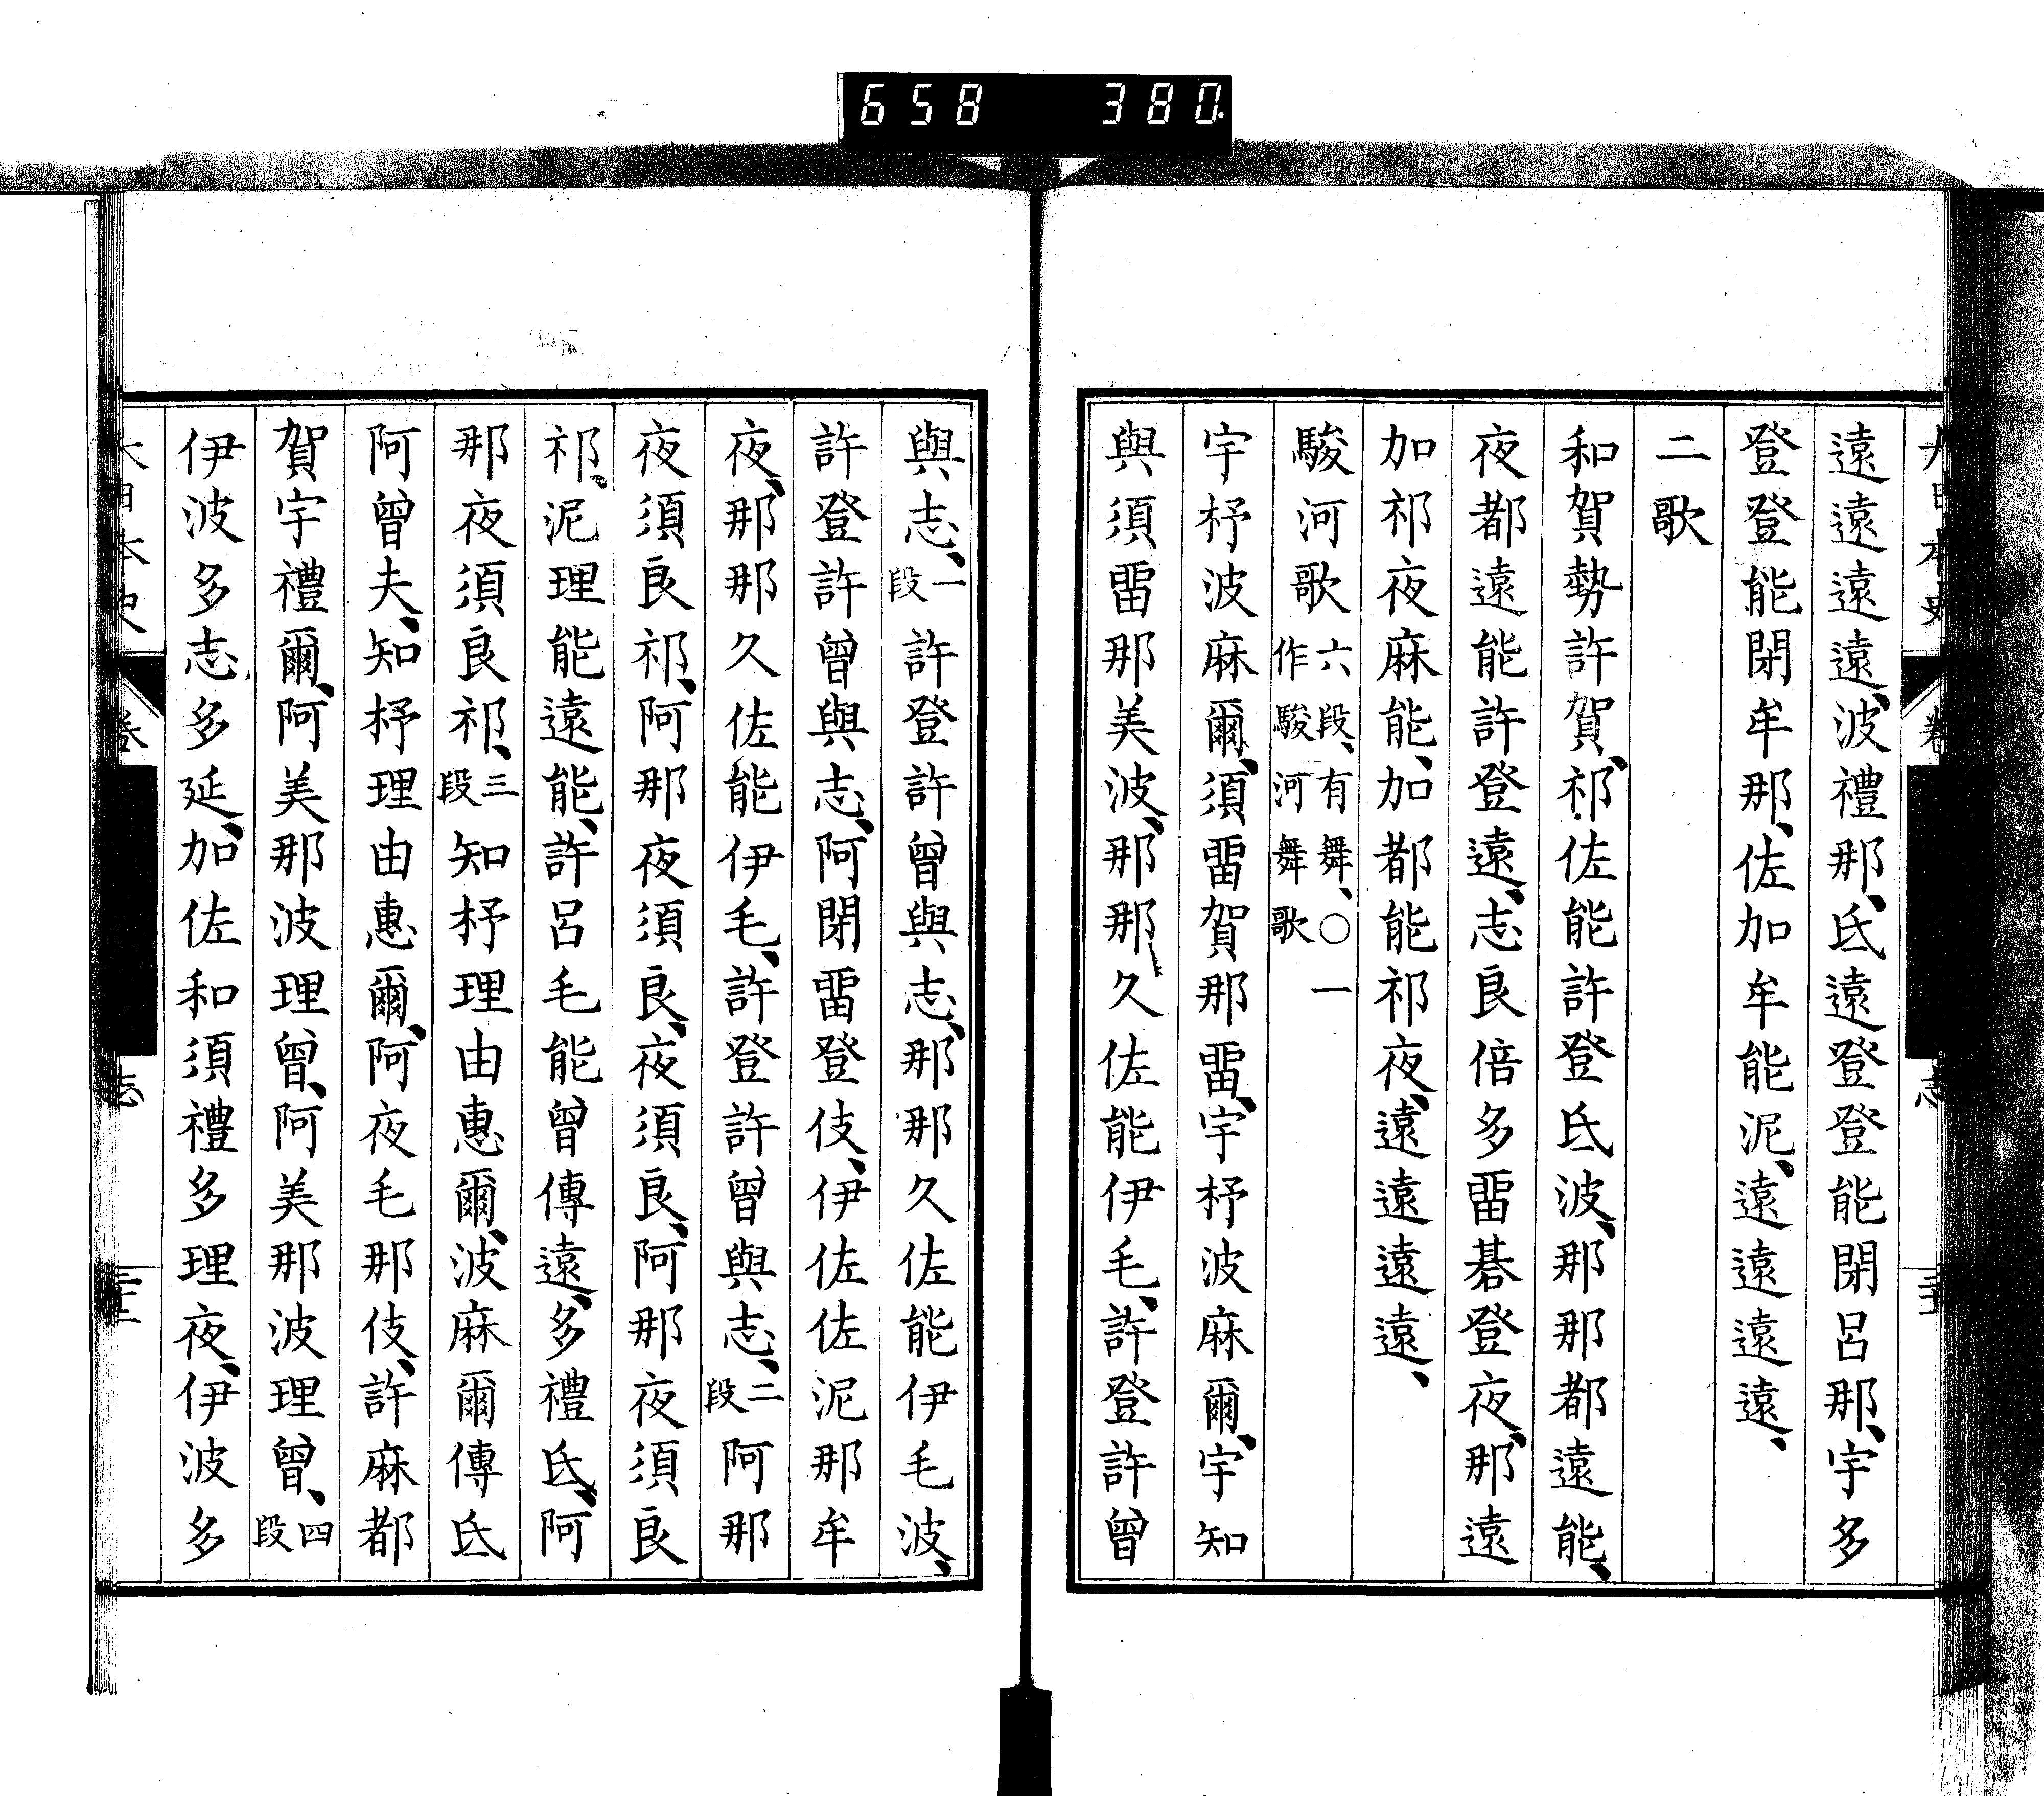 658 380
遠遠遠遠、波禮那、氐遠登登能閇呂那、宇多
登登能閇牟那、佐加牟能泥、遠遠遠遠、
二歌
和賀勢許賀、祁佐能許登氐波、那那都遠能、
夜都遠能許登遠、志良倍多畱碁登夜、那遠
加祁夜麻能、加都能祁夜、遠遠遠遠、
駿河歌六段、有舞、〇一作駿河舞歌
宇杼波麻爾、須畱賀那畱、宇杼波麻爾、宇知
與須畱那美波、那那久佐能伊毛、許登許曾
與志、一段許登許曾與志、那那久佐能伊毛波、
許登許曾與志、阿閇畱登伎、伊佐佐泥那牟
夜、那那久佐能伊毛、許登許曾與志、二段阿那
夜須良祁、阿那夜須良、夜須良、阿那夜須良
祁、泥理能遠能、許呂毛能曾傳遠、多禮氐、阿
那夜須良祁、三段知杼理由惠爾、波麻爾傳氐
阿曾夫、知杼理由惠爾、阿夜毛那伎、許麻都
賀宇禮爾、阿美那波理曾、阿美那波理曾、四段
伊波多志多延、加佐和須禮多理夜、伊波多
大日本史 卷 志